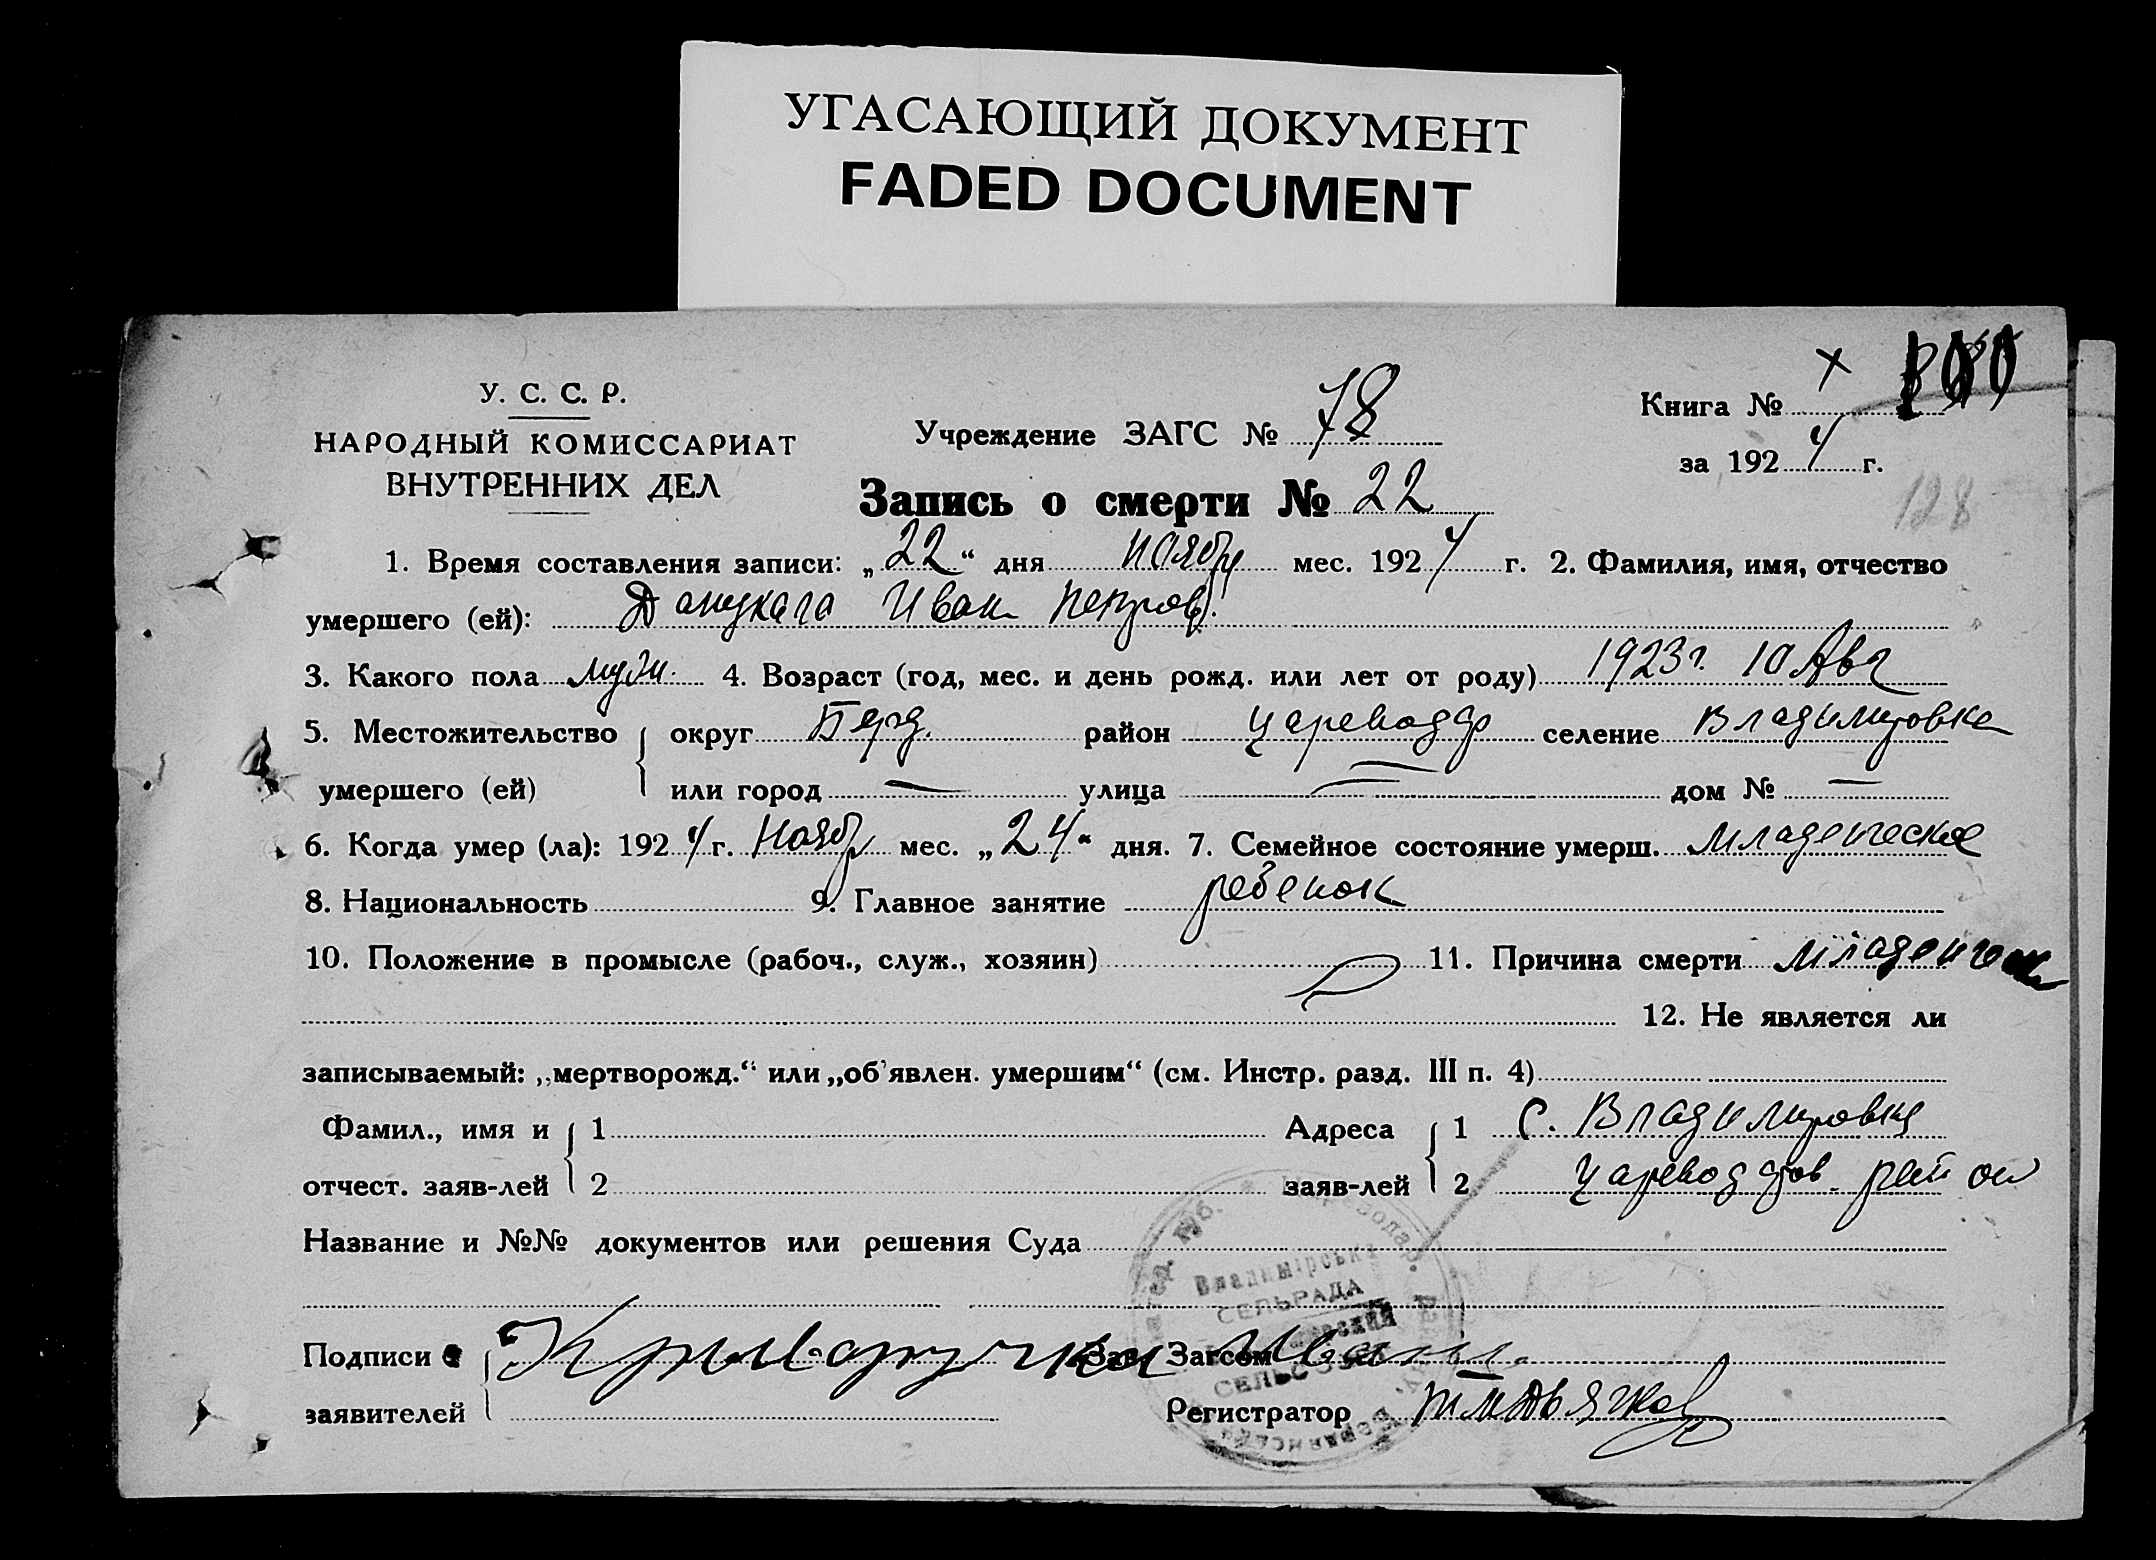 УГАСАЮЩИЙ ДОКУМЕНТ
FADED DOCUMENT
У. С. С. Р.
НАРОДНЫЙ КОМИССАРИАТ
ВНУТРЕННИХ ДЕЛ
Учреждение ЗАГС № 78
Книга №
за 1924 г.
128
Запись о смерти № 22
1. Время составления записи: „22“ дня Ноября мес. 1924 г. 2. Фамилия, имя, отчество
умершего (ей): Иван Петров.
3. Какого пола муж. 4. Возраст (год, мес. и день рожд. или лет от роду) 1923 г. 10 Авг
5. Местожительство округ Берд. район Цареводар селение Владимировка
умершего (ей) или город — улица — дом № —
6. Когда умер (ла): 1924 г. Ноябр мес. „24“ дня. 7. Семейное состояние умерш. Младенческое
8. Национальность 9. Главное занятие ребенок
10. Положение в промысле (рабоч., служ., хозяин) 11. Причина смерти
12. Не является ли
записываемый: „мертворожд.“ или „об'явлен. умершим“ (см. Инстр. разд. III п. 4)
Фамил., имя и 1 Адреса 1 С. Владимировка
отчест. заяв-лей 2 заяв-лей 2
Название и №№ документов или решения Суда
Владимірська
СЕЛЬРАДА
Подписи Криворучко Зав. Загсом
заявителей Регистратор